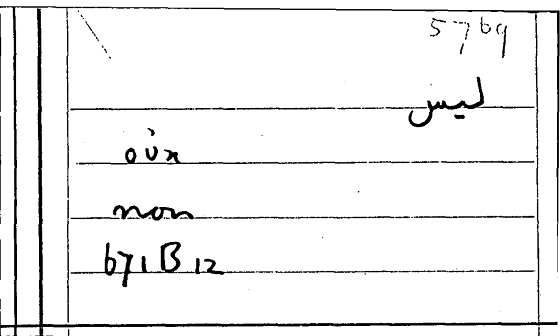 5769
ليس
οὐχ
non
671B12